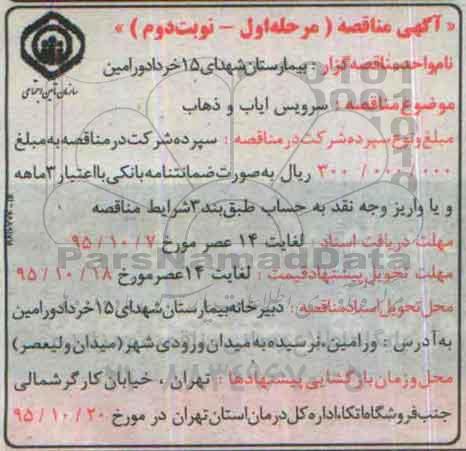 « آگهی مناقصه ( مرحله اول - نوبت دوم ) »
سازمان تأمین اجتماعی
نام واحد مناقصه گزار : بیمارستان شهدای ۱۵ خرداد ورامین
موضوع مناقصه : سرویس ایاب و ذهاب
مبلغ و نوع سپرده شرکت در مناقصه : سپرده شرکت در مناقصه به مبلغ
۳۰۰/۰۰۰/۰۰۰ ریال به صورت ضمانتنامه بانکی با اعتبار ۳ ماهه
و یا واریز وجه نقد به حساب طبق بند ۳ شرایط مناقصه
مهلت دریافت اسناد : لغایت ۱۴ عصر مورخ ۹۵/۱۰/۷
مهلت تحویل پیشنهاد قیمت : لغایت ۱۴ عصر مورخ ۹۵/۱۰/۱۸
محل تحویل اسناد مناقصه : دبیرخانه بیمارستان شهدای ۱۵ خرداد ورامین
به آدرس : ورامین، نرسیده به میدان ورودی شهر (میدان ولیعصر)
محل و زمان بازگشایی پیشنهادها : تهران ، خیابان کارگر شمالی
جنب فروشگاه اتکا، اداره کل درمان استان تهران در مورخ ۹۵/۱۰/۲۰
ParsNamadData